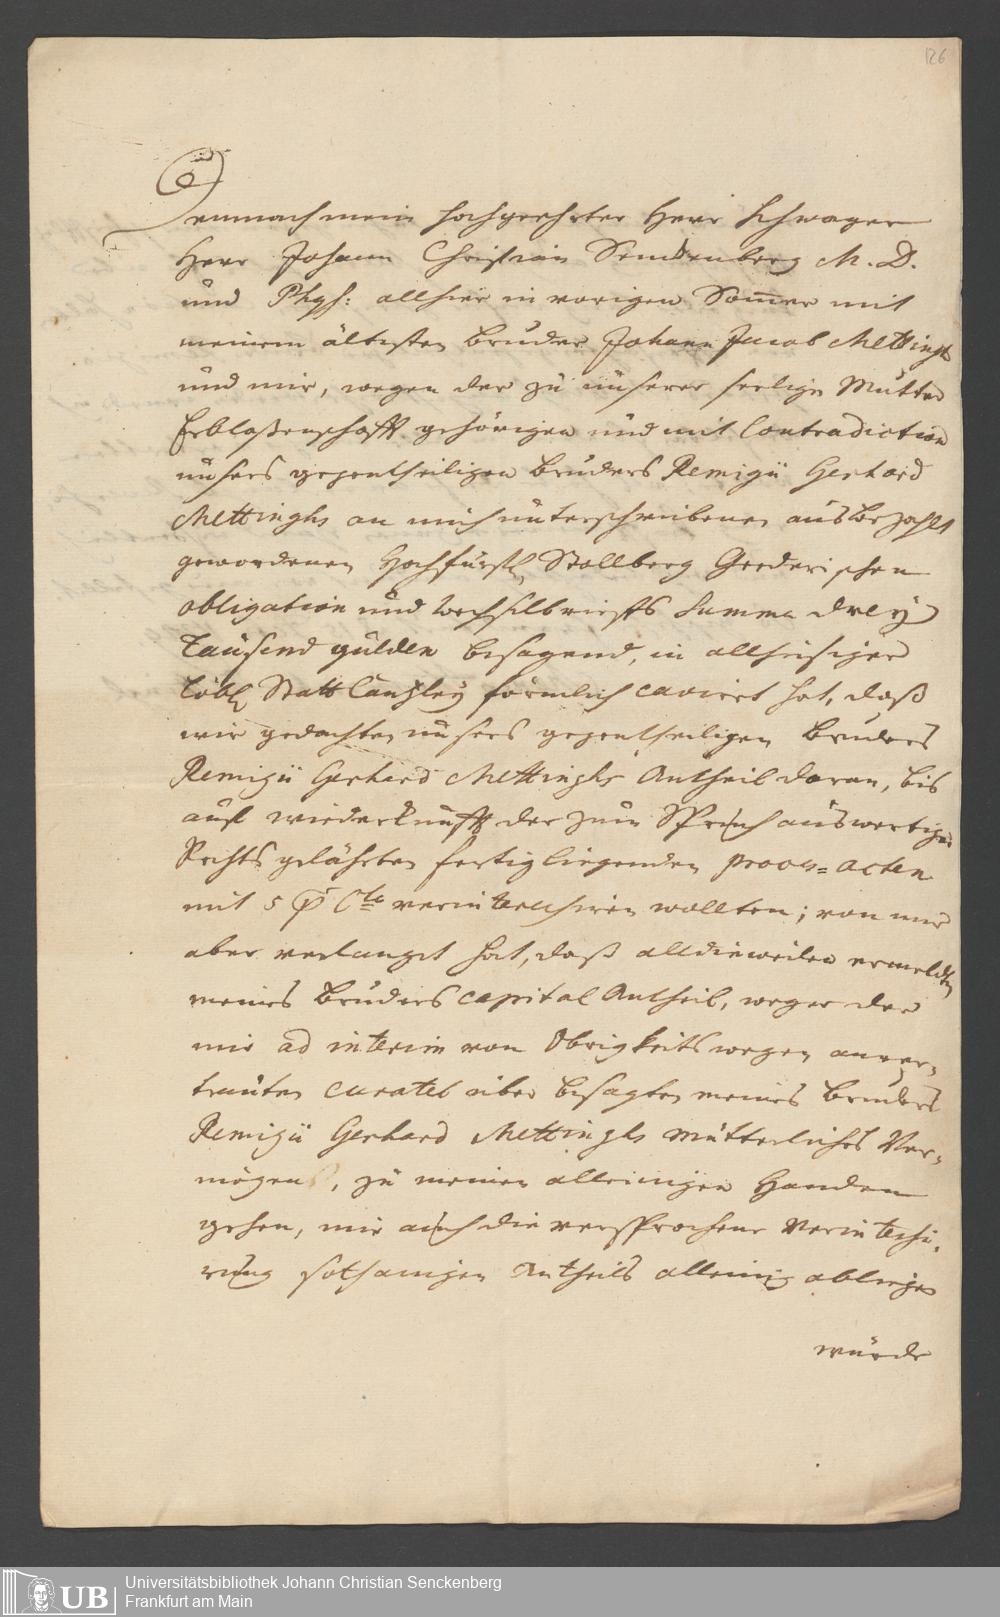 126
Demnach mein hochgeehrter Herr Schwager
Herr Johann Christian Senckenberg M. D.
und Phys: allhier in vorigen Sommer mit
meinem ältesten Bruder Johann Jacob Mettingh
und mir, wegen der zu unserer seelige Mutter
Erblaßenschafft gehörigen und mit Contradiction
unsers gegentheiligen Bruders Remigii Gerhard
Mettinghs an mich unterschriebenen ausbezahlt
gewordenen Hochfürstl Stollberg Gederischen
obligation und Wechselbrieffs Summa drey
Tausend gulden besagend, in allhiesiger
löbl Statt Canzley förmlich cavirt hat, daß
wir gedachten unsers gegentheiligen Bruders
Remigii Gerhard Mettinghs Antheil daran, bis
auf wiederkunfft der zum Spruch auswertiger
Rechtsgelährten fertig liegenden process=acten
mit 5 pr Cto verinteressiren wollten; von mir
aber verlangt hat, daß alldieweilen ermeldten
meines Bruders capital Antheil, wegen der
mir ad interim von Obrigkeits wegen anver-
trauten curatel über besagten meines Bruders
Remigii Gerhard Mettinghs mütterliches Ver-
mögen, zu meinen alleinigen Handen
gehen, mir auch die versprochene Verinteressi-
rung sothanigen Antheils alleinig obliegen
würde
UB
Universitätsbibliothek Johann Christian Senckenberg
Frankfurt am Main